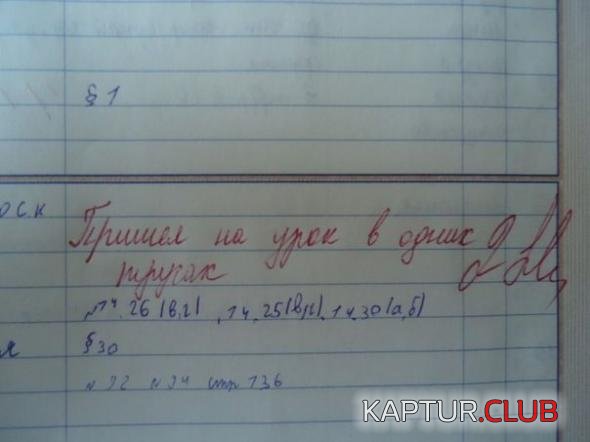 § 1
оск
Пришел на урок в одних
трусах
№14.26 (в,г), 14.25(в,г), 14.30(а,б)
§ 30
№ 92 № 94 стр 136
KAPTUR.CLUB